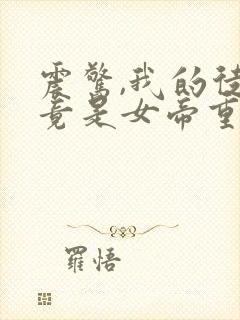 震驚,我的徒
竟是女帝重
羅悟